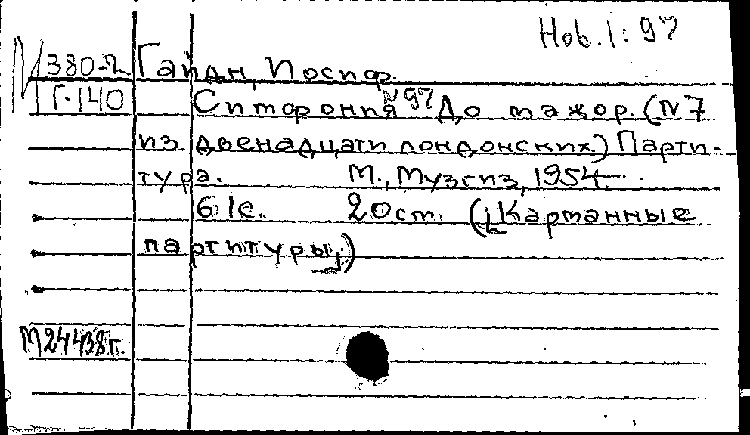 Hob. I: 97
М 380-2 Гайдн, Иосиф.
Г-140 Симфония №97 До мажор. (№7
из двенадцати лондонских) Парти-
тура. М., Музгиз, 1954.
61с. 20см. ([Карманные
партитуры])
М24438г.